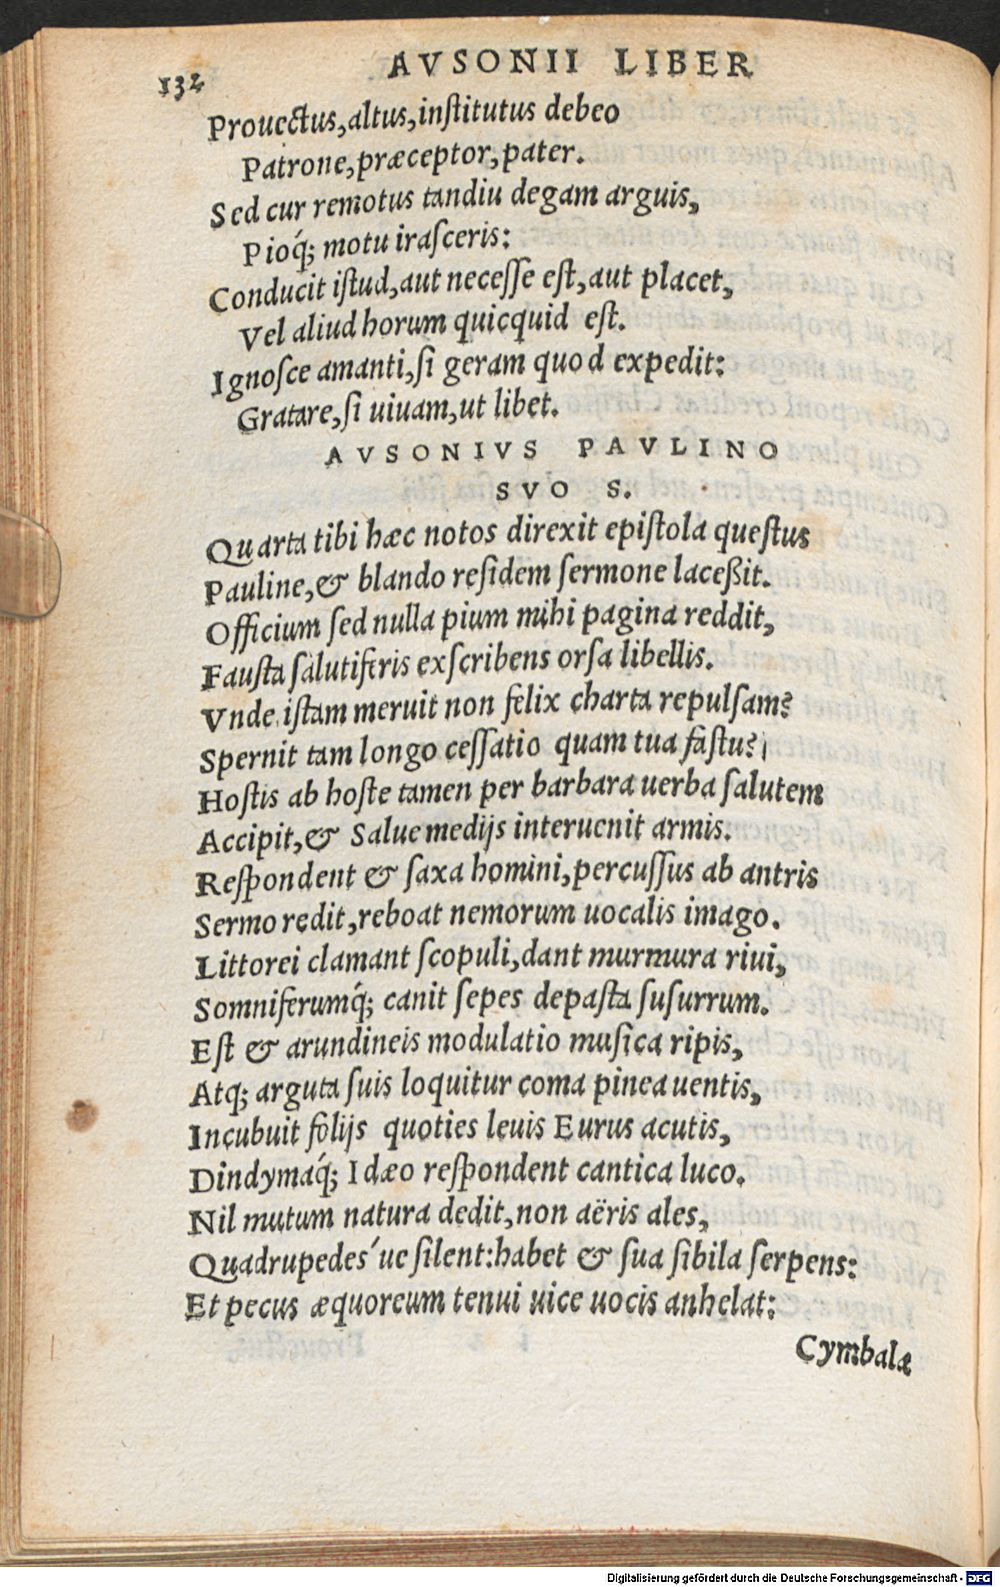 132
AVSONII LIBER
Prouectus,altus,inſtitutus debeo
Patrone,præceptor,pater.
Sed cur remotus tandiu degam arguis,
Pioq́; motu iraſceris:
Conducit iſtud,aut neceſſe eſt,aut placet,
Vel aliud horum quicquid eſt.
Ignoſce amanti,ſi geram quod expedit:
Gratare,ſi uiuam,ut libet.
AVSONIVS PAVLINO
SVO S.
Quarta tibi hæc notos direxit epiſtola queſtus
Pauline,& blando reſidem ſermone laceßit.
Officium ſed nulla pium mihi pagina reddit,
Fauſta ſalutiferis exſcribens orſa libellis.
Vnde iſtam meruit non felix charta repulſam?
Spernit tam longo ceſſatio quam tua faſtu?
Hoſtis ab hoſte tamen per barbara uerba ſalutem
Accipit,& Salue medijs interuenit armis.
Reſpondent & ſaxa homini,percuſſus ab antris
Sermo redit,reboat nemorum uocalis imago.
Littorei clamant ſcopuli,dant murmura riui,
Somniferumq́; canit ſepes depaſta ſuſurrum.
Eſt & arundineis modulatio muſica ripis,
Atq; arguta ſuis loquitur coma pinea uentis,
Incubuit folijs quoties leuis Eurus acutis,
Dindymaq́; Idæo reſpondent cantica luco.
Nil mutum natura dedit,non aëris ales,
Quadrupedes ́ue ſilent:habet & ſua ſibila ſerpens:
Et pecus æquoreum tenui uice uocis anhelat:
Cymbalæ
Digitalisierung gefördert durch die Deutsche Forschungsgemeinschaft - DFG